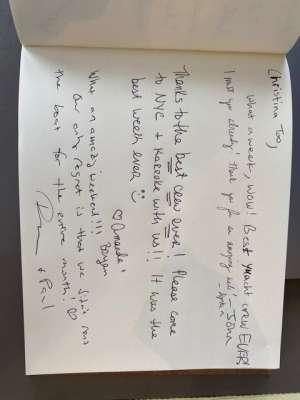 Christina Too,
What a week, Wow! Best yacht crew EVER!
- John
I miss you already! Thank you for an amazing week!
Thanks to the best crew ever! Please come
to NYC + Karaoke with us!! It was the
best week ever
♡ Amanda
What an amazing weekend!!!
Our only regret is that we didn't rent
the boat for the entire month! ♡
+ Paul